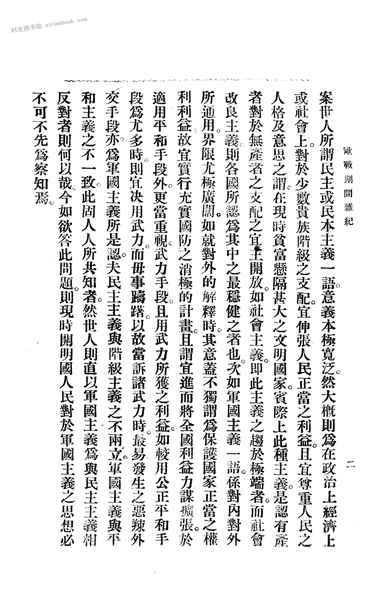 歐戰期間雜紀
二
案世人所謂民主或民本主義一語。意義本極寬泛。然大槪則爲在政治上經濟上
或社會上。對於少數貴族階級之支配。宜伸張人民正當之利益。且宜尊重人民之
人格及意思之謂。在現時貧富懸隔甚大之文明國家。實際上此種主義。是認有產
者對於無產者之支配之宜主開放。如社會主義。卽此主義之趨於極端者。而社會
改良主義。則各國所認爲其中之最穩健之者也。次如軍國主義一語。係對內對外
所通用。界限尤極廣闊。如就對外的解釋時。其意蓋不獨謂爲保護國家正當之權
利利益。故宜實行充實國防之消極的計畫。且謂宜進而將全國利益力謀擴張。於
適用平和手段外。更當重視武力手段。且用武力所獲之利益。如較用公正平和手
段爲尤多時。則宜决用武力。而毋事躊躇。以故當訴諸武力時。最易發生之惡辣外
交手段。亦爲軍國主義所是認。夫民主主義與階級主義之不兩立。軍國主義與平
和主義之不一致。此固人人所共知者。然世人則直以軍國主義爲與民主主義相
反對者。則何以哉。今如欲答此問題。則現時開明國人民對於軍國主義之思想。必
不可不先爲察知焉。